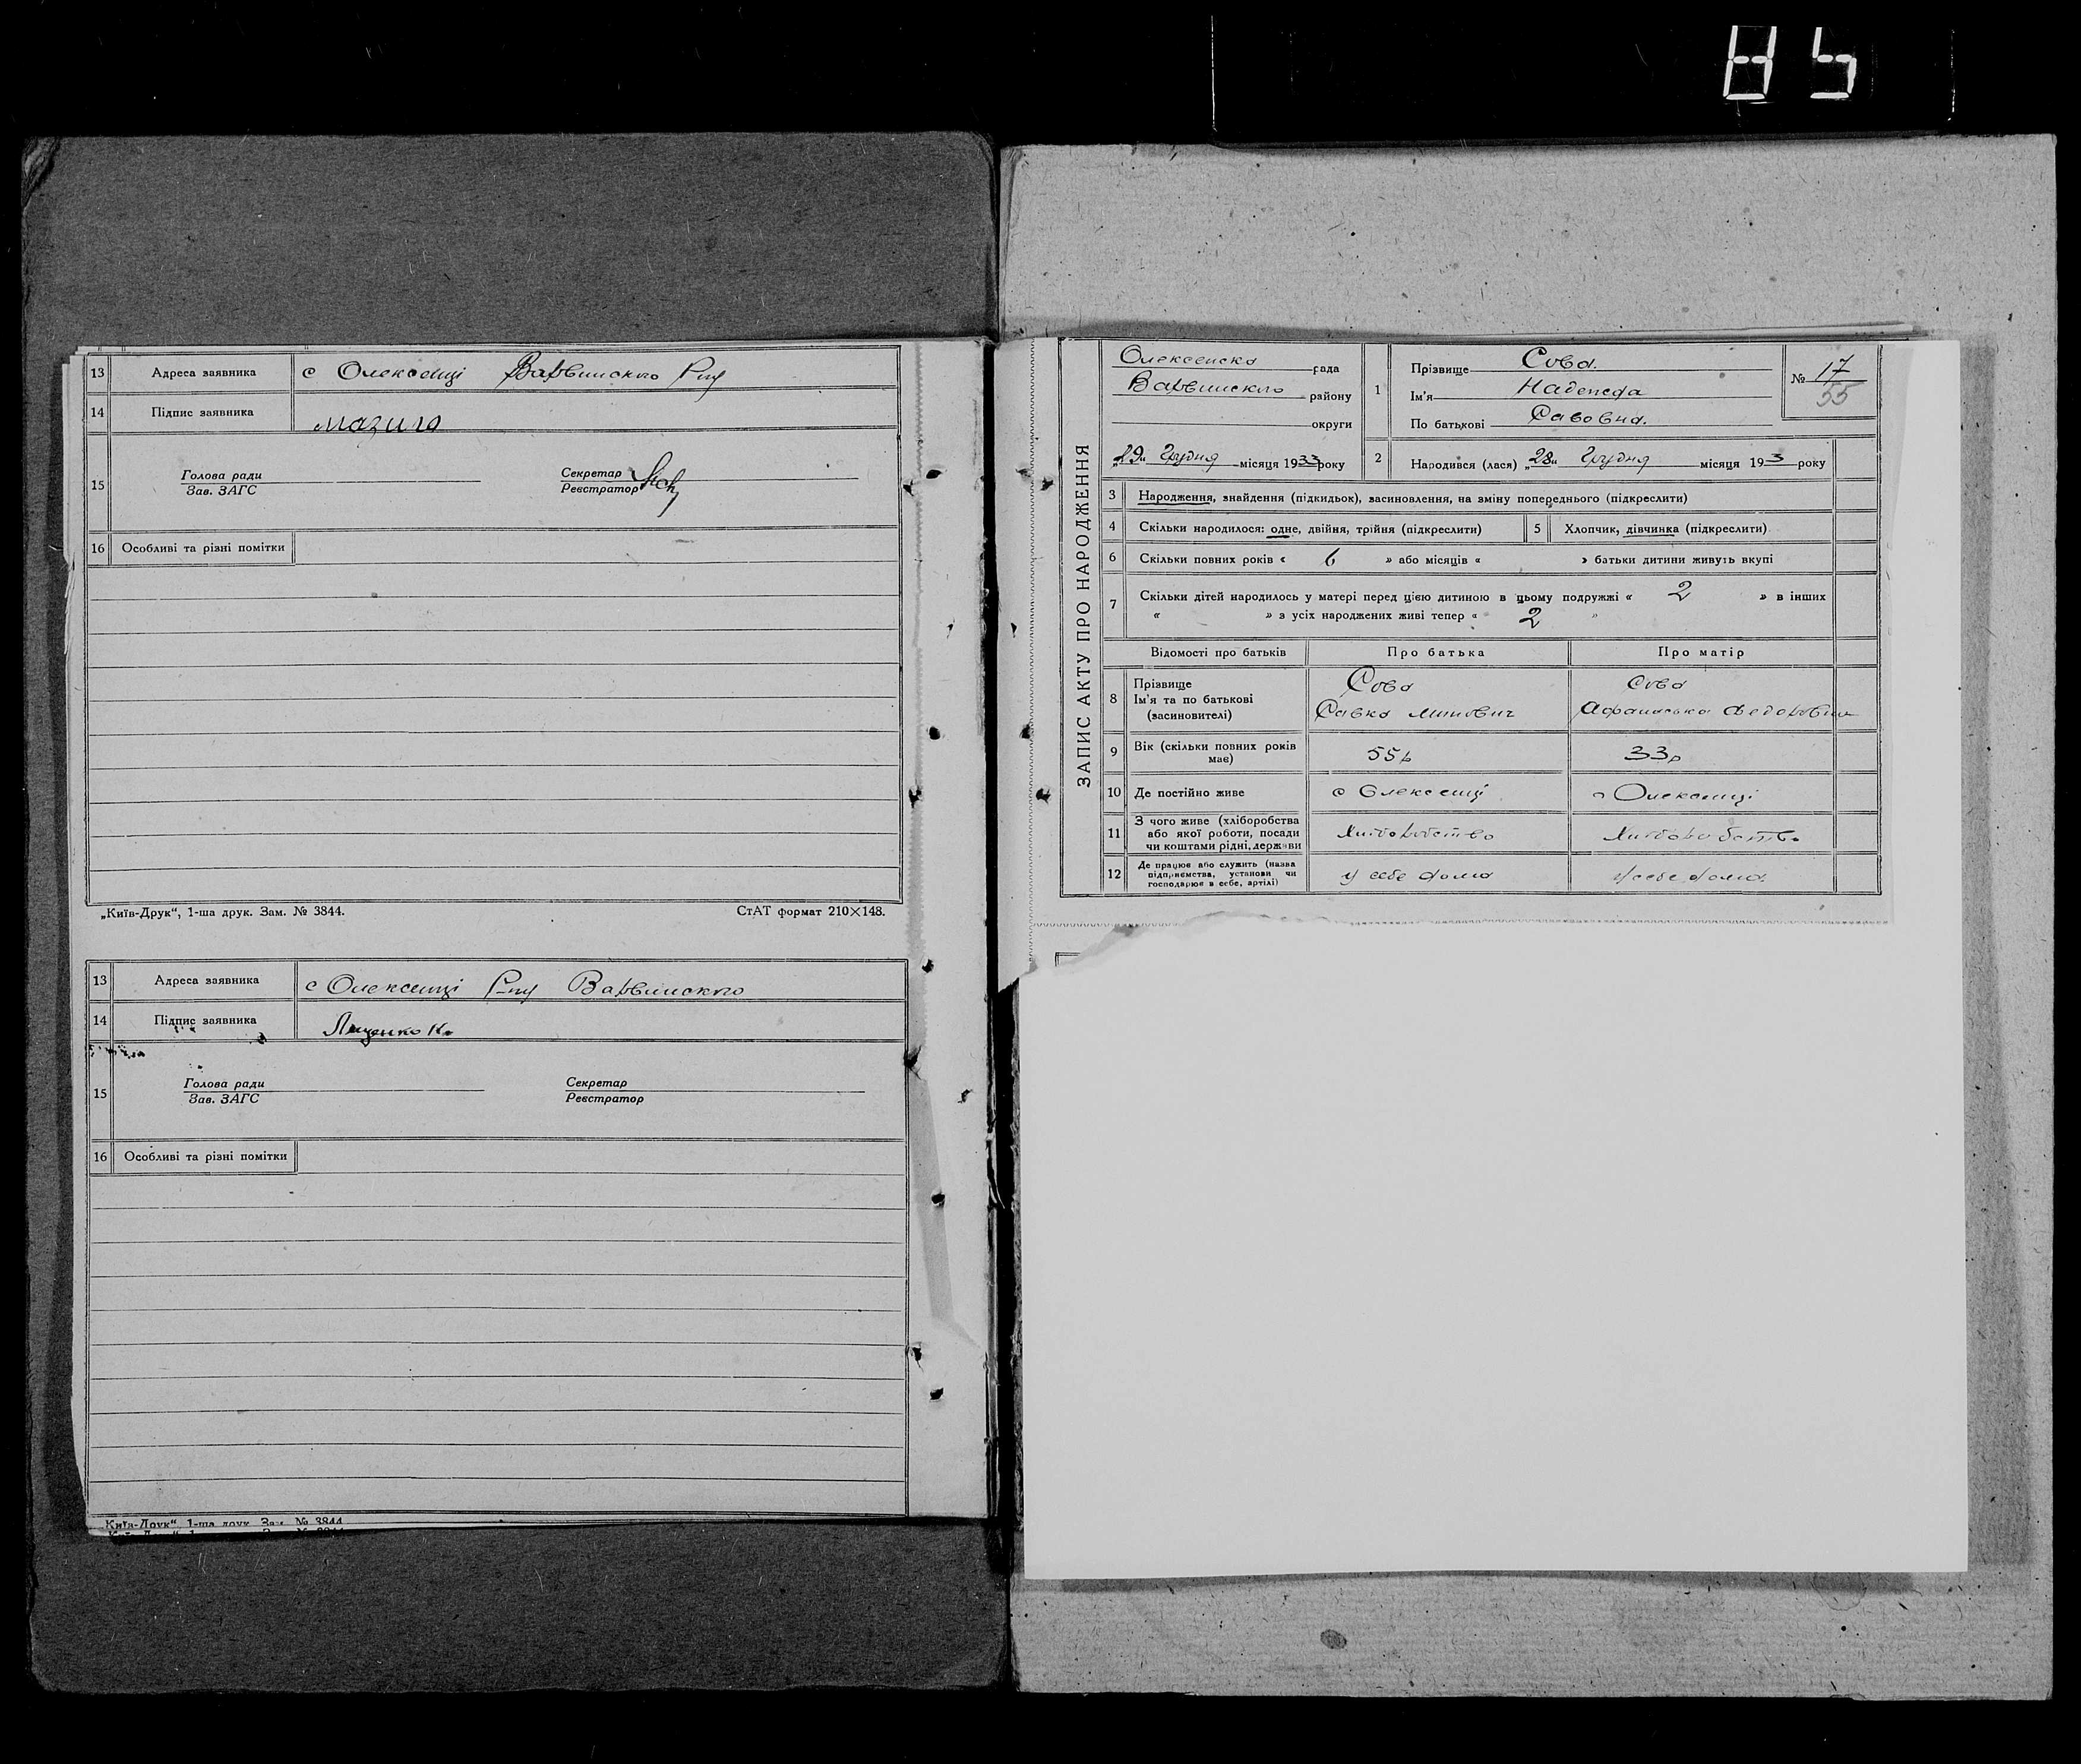 85
13 Адреса заявника с Олексенці Варвинського Рну
14 Підпис заявника Мазило
15 Голова ради Секретар
Зав. ЗАГС Реєстратор
16 Особливі та різні помітки
„Київ-Друк“, 1-ша друк. Зам. № 3844. СтАТ формат 210×148.
13 Адреса заявника с Олексенці Рну Варвинського
14 Підпис заявника Лященко К.
15 Голова ради Секретар
Зав. ЗАГС Реєстратор
16 Особливі та різні помітки
„Київ-Друк“, 1-ша друк. Зам. № 3844
ЗАПИС АКТУ ПРО НАРОДЖЕННЯ
Олексенска рада
Варвинського району
округи
„29“ Грудня місяця 1933 року
1 Прізвище Сова.
Ім'я Надежда
По батькові Савовна.
№ 17
55
2 Народився (лася) „28“ Грудня місяця 193 3 року
3 Народження, знайдення (підкидьок), засиновлення, на зміну попереднього (підкреслити)
4 Скільки народилося: одне, двійня, трійня (підкреслити) 5 Хлопчик, дівчинка (підкреслити)
6 Скільки повних років « 6 » або місяців « » батьки дитини живуть вкупі
7 Скільки дітей народилось у матері перед цією дитиною в цьому подружжі « 2 » в інших
« » з усіх народжених живі тепер « 2 »
Відомості про батьків Про батька Про матір
8 Прізвище
Ім'я та по батькові
(засиновителі)
Сова
Савка Минович
Сова
Афанаська Федоровна
9 Вік (скільки повних років
має)
55р 33р
10 Де постійно живе с Олексенці с Олексенці
11 З чого живе (хліборобства
або якої роботи, посади
чи коштами рідні, держави
Хліборобство Хліборобство
12 Де працює або служить (назва
підприємства, установи чи
господарює в себе, артілі)
у себе дома у себе дома